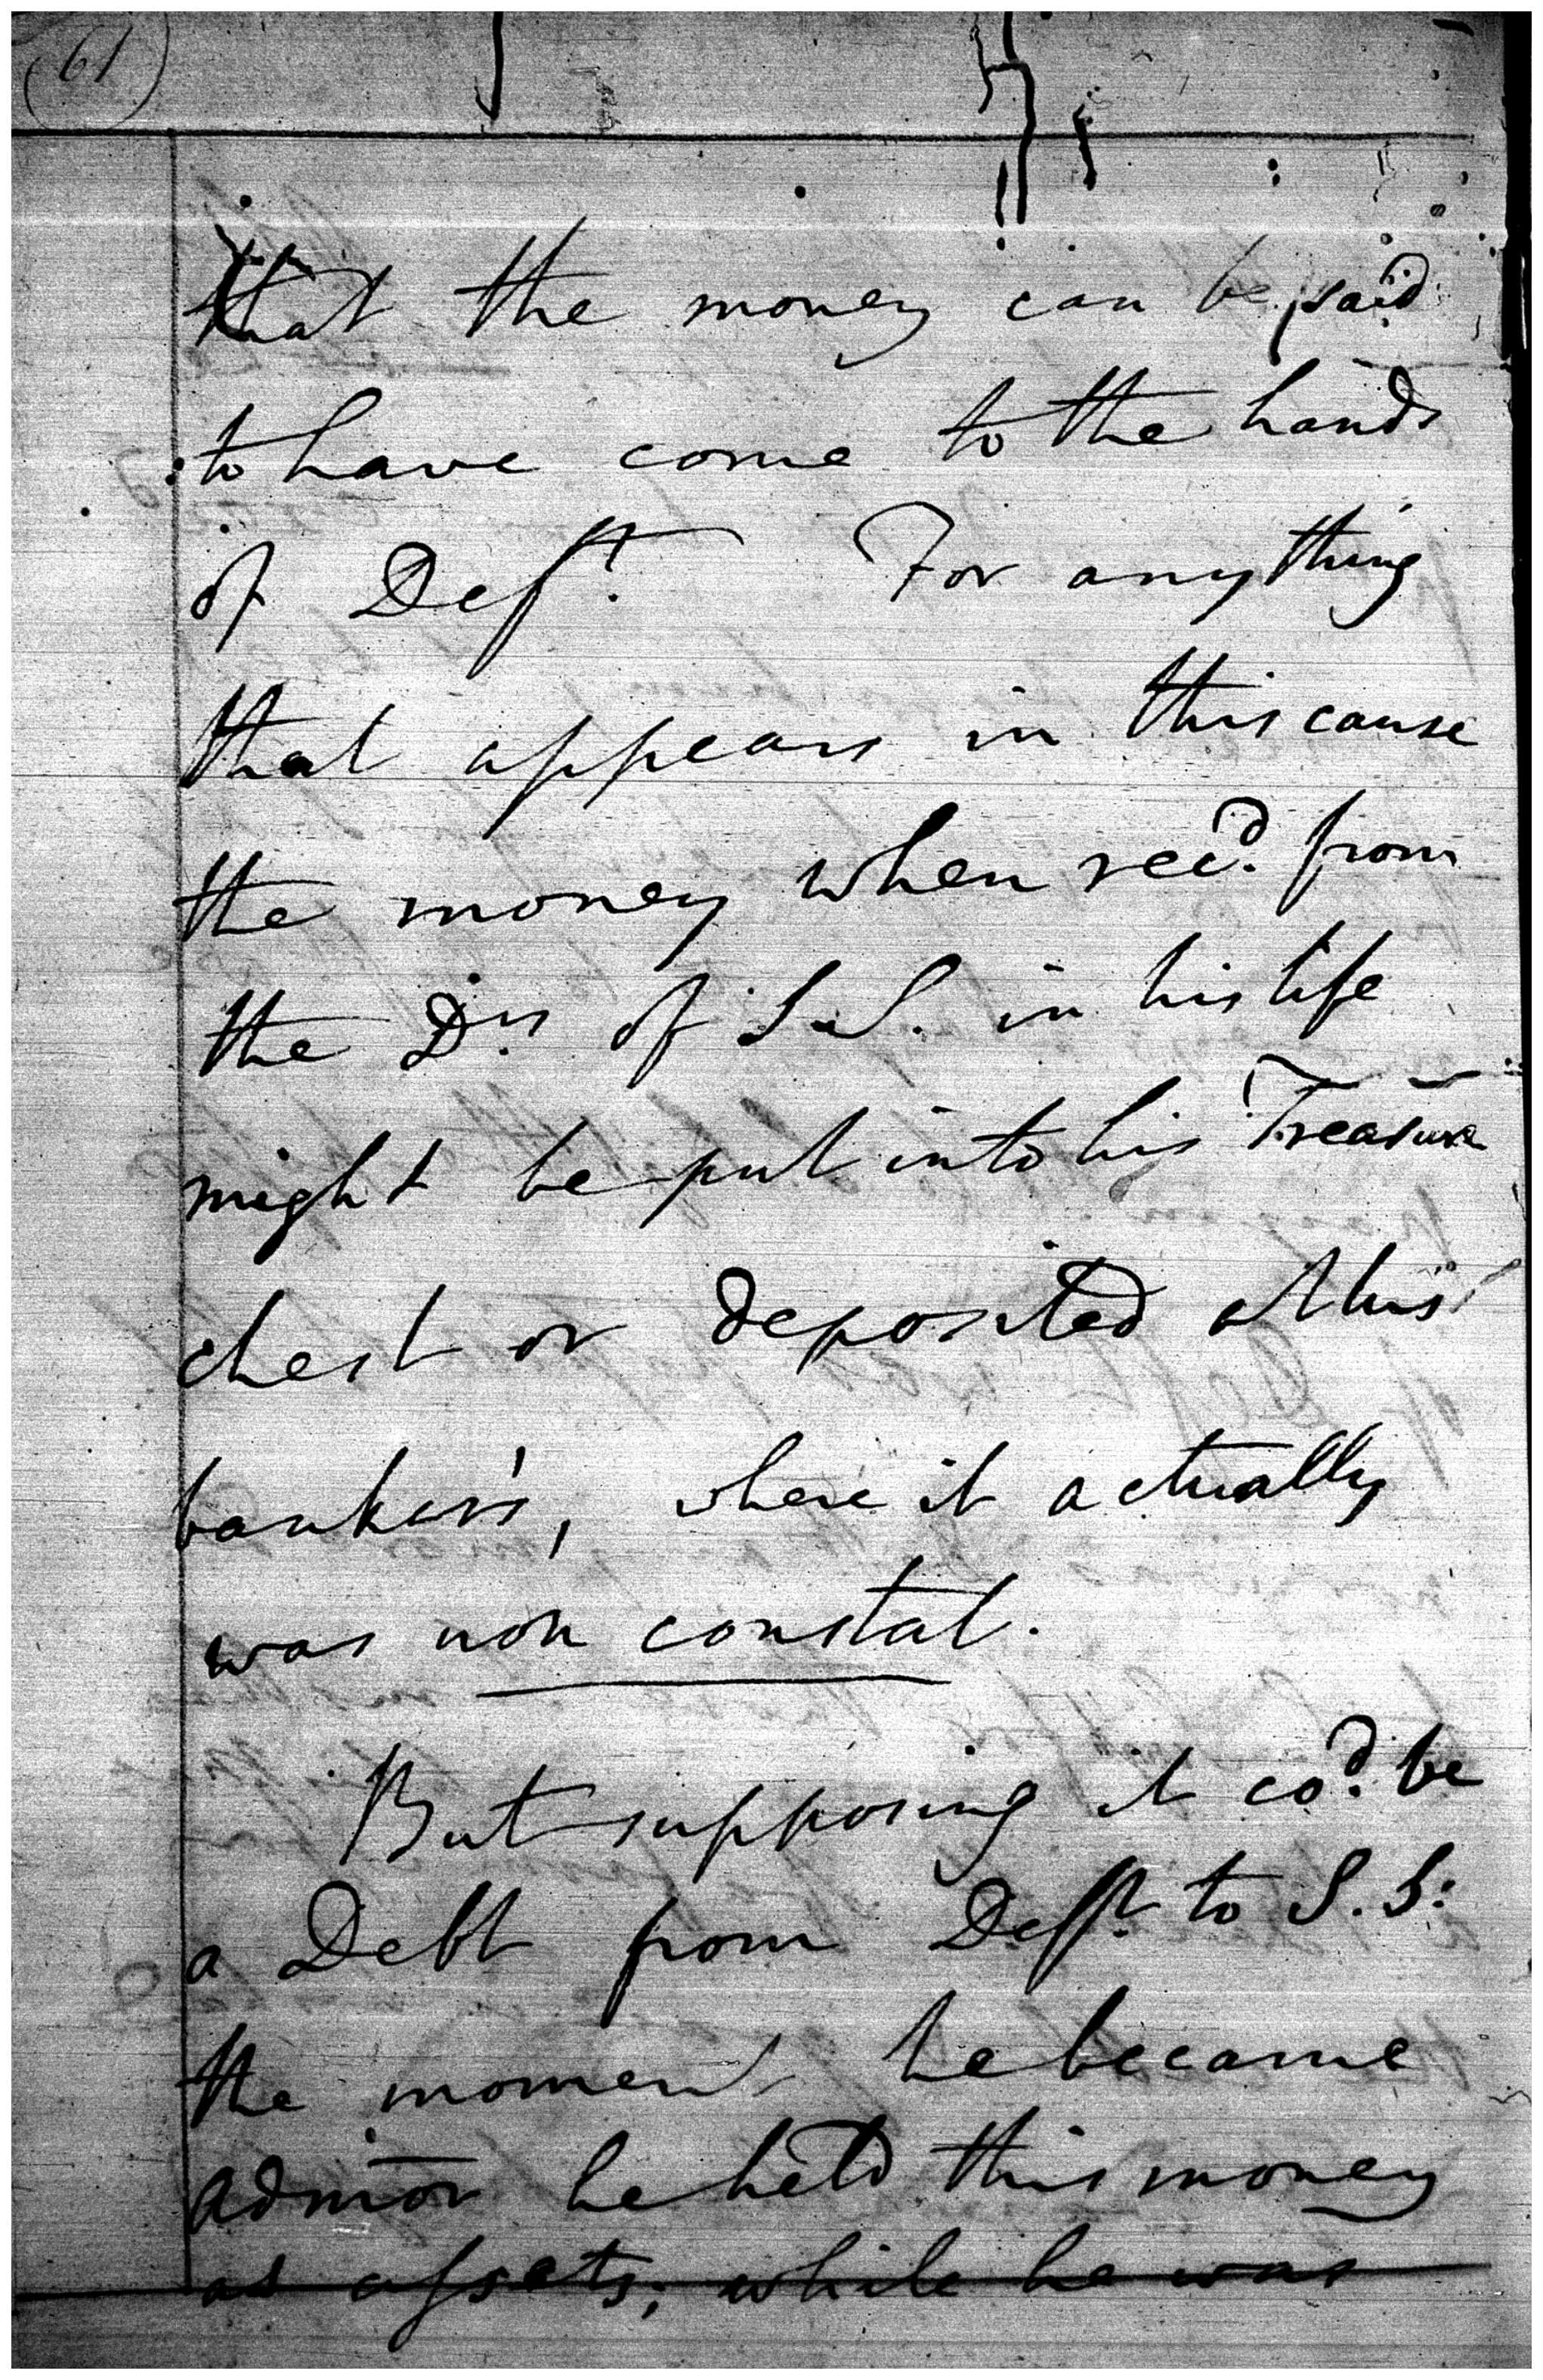 (61)
that the money can be said
to have come to the hands
of Deft. For anything
that appears in this cause
the money when recd. from
the Drs of S.S. in his life
might be put into his Treasure
chest or deposited at his
banker's, where it actually
was non constat.
But supposing it cod. be
a Debt from Deft. to S.S:
the moment he became
admor he held this money
as assets; while he was